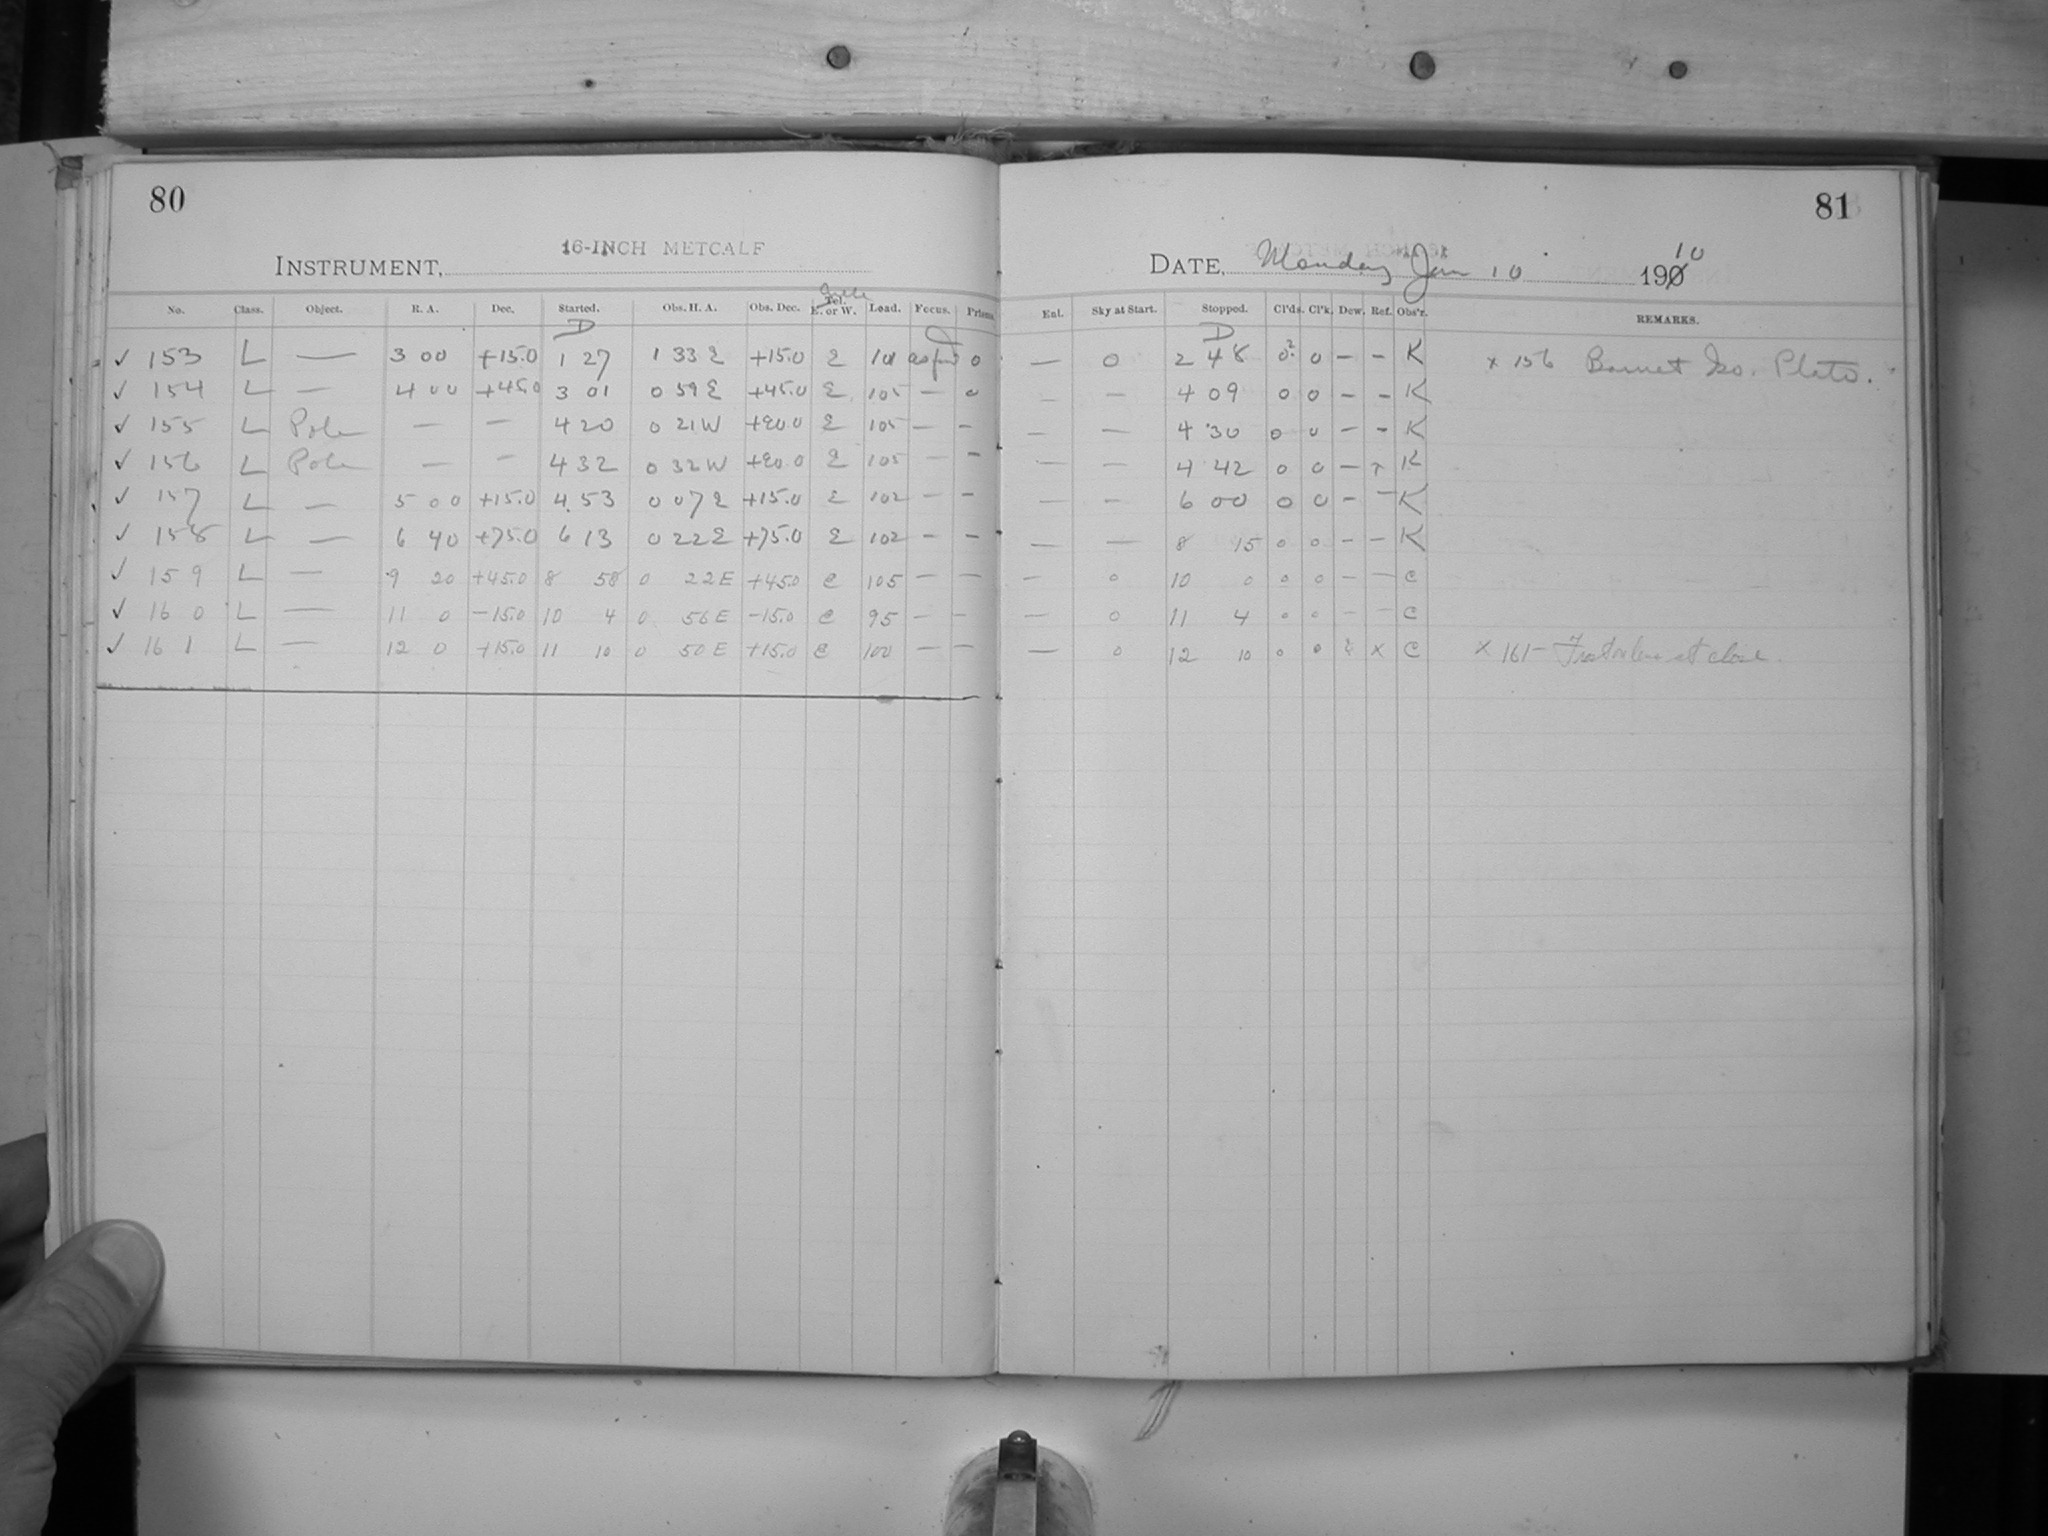 80
16-INCH METCALF
INSTRUMENT,
No. Class. Object. R. A. Dec. Started. Obs. H. A. Obs. Dec. Tel. E. or W. Load. Focus. Prisms.
D
✓ 153 L — 3 00 +15.0 1 27 1 33 E +15.0 E 101 0
✓ 154 L — 4 00 +45.0 3 01 0 59 E +45.0 E 105 — 0
✓ 155 L Pole — — 4 20 0 21 W +90.0 E 105 — —
✓ 156 L Pole — — 4 32 0 32 W +90.0 E 105 — —
✓ 157 L — 5 00 +15.0 4 53 0 07 E +15.0 E 102 — —
✓ 158 L — 6 40 +75.0 6 13 0 22 E +75.0 E 102 — —
✓ 159 L — 9 20 +45.0 8 58 0 22 E +45.0 E 105 — —
✓ 160 L — 11 0 -15.0 10 4 0 56 E -15.0 E 95 — —
✓ 161 L — 12 0 +15.0 11 10 0 50 E +15.0 E 100 — —
81
DATE, Monday Jan 10 1900 10
Ent. Sky at Start. Stopped. Cl'ds. Cl'k. Dew. Ref. Obs'r. REMARKS.
D
— 0 2 48 0² 0 — — K x 156 Plate.
— — 4 09 0 0 — — K
— — 4 30 0 0 — — K
— — 4 42 0 0 — x K
— — 6 00 0 0 — — K
— — 8 15 0 0 — — K
— 0 10 0 0 0 — — C
— 0 11 4 0 0 — — C
— 0 12 10 0 0 x C x 161- Frost on lens at close.